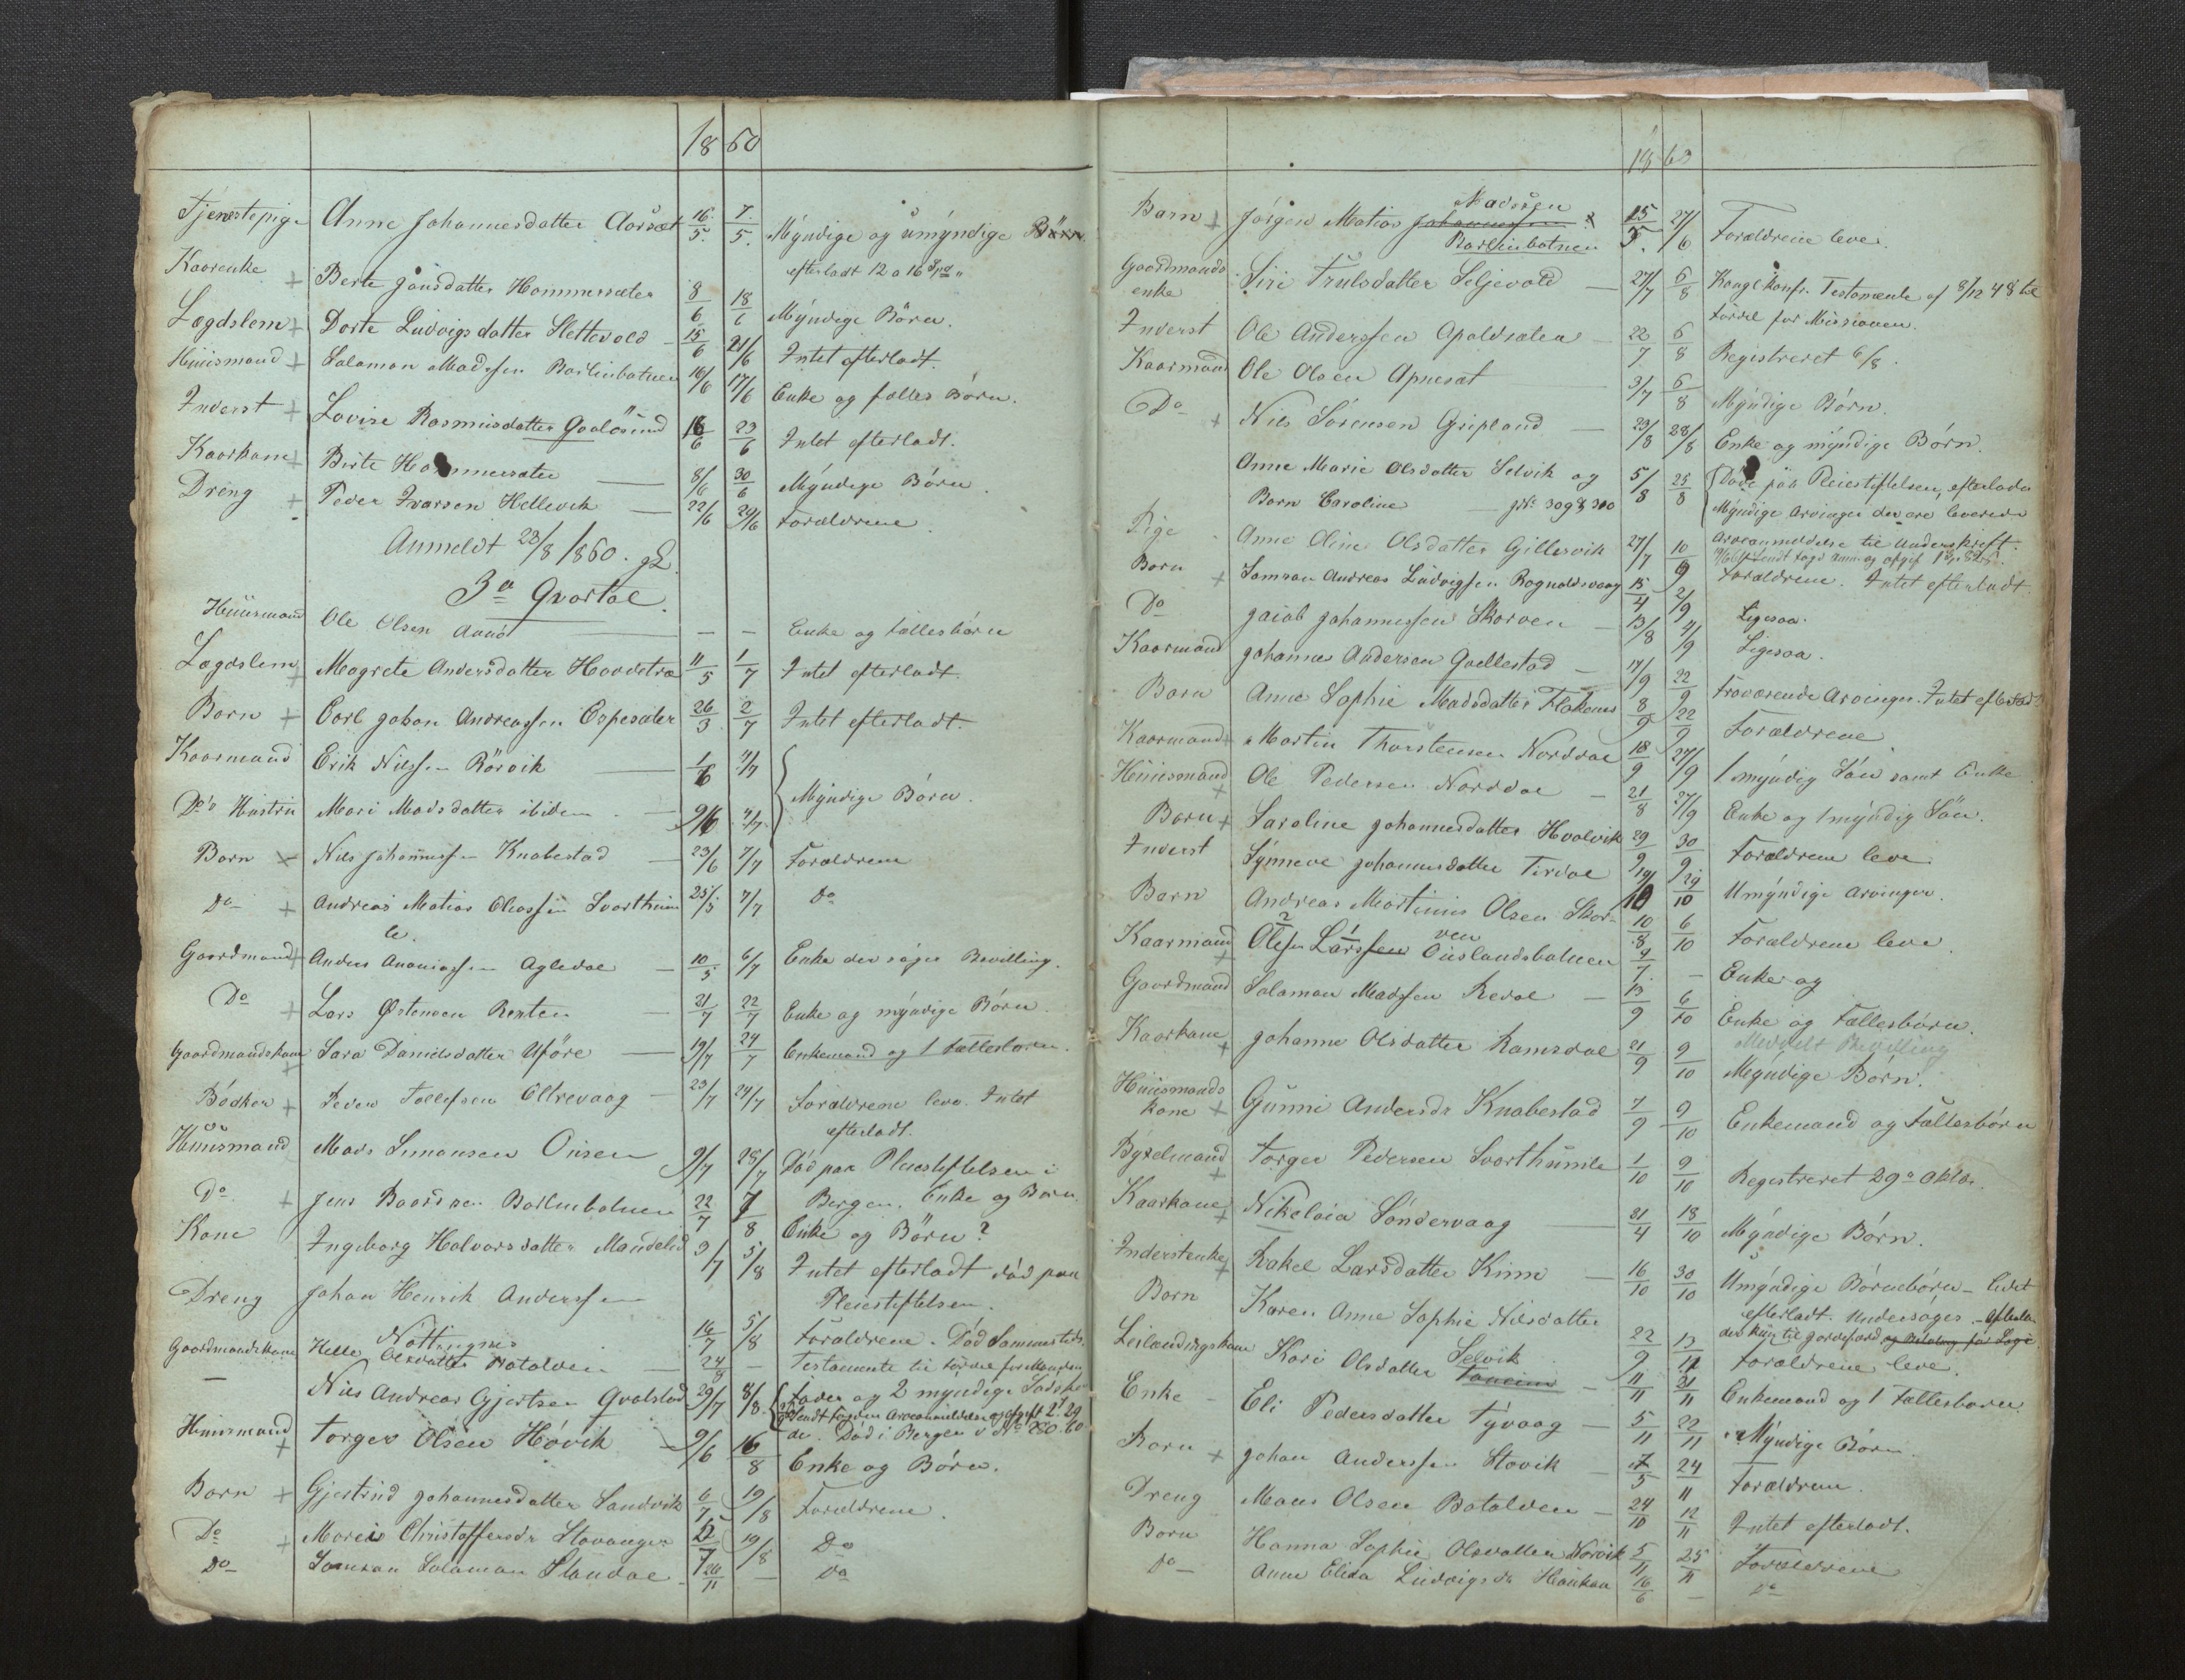 1860
Tjenestepige Anne Johannesdatter Aarsæt 16/5. 7/5. Myndige og umyndige Börn
efterladt 12 a 16 Spd
Kaarenke + Berte Jonsdatter Hammersæter 8/6 18/6 Myndige Börn.
Lægdslem + Dorte Ludvigsdatter Slettevold - 15/6 21/6 Intet efterladt.
Huusmand + Salamon Madssen Barlinbotnen 16/6 17/6 Enke og fælles Børn.
Inderst + Lovise Rasmusdatter Gaaløsund 18/6 23/6 Intet efterladt.
Kaarkone + Birte Hammersæter 8/6 30/6 Myndige Børn.
Dreng + Peder Ivarsen Hellevik 22/6 29/6 Forældrene.
Anmeldt 23/8 1860.
3a Qvartal.
Huusmand Ole Olsen Aanø - - Enke og fællesbørn
Lægdslem + Magrete Andersdatter Hovdetræ 11/5 1/7 Intet efterladt.
Barn + Carl Johan Andreassen Espesæter 26/3 2/7 Intet efterladt.
Kaarmand Erik Nilssen Rörvik 1/6 4/7
Do's Hustru Mari Madsdatter ibidem 9/6 4/7 Myndige Børn.
Barn Nils Johannessen Knabestad 23/6 7/7 Forældrene
Do + Andreas Matias Oliassen Svorthum 25/5 7/7 Do
le.
Gaardmand + Anders Ananiassen Agledal 10/5 6/7 Enke der søger Bevilling.
Do + Lars Østensen Renten 21/7 22/7 Enke og myndige Børn
Gaardmandskone + Sara Danielsdatter Uføre 19/7 24/7 Enkemand og 1 fællesbarn.
Bödker + Peder Tollefsen Oltrevaag 23/7 24/7 Forældrene leve. Intet
efterladt.
Huusmand Mads Simonsen Ousen 9/7 28/7 Død paa Pleiestiftelsen i
Bergen. Enke og Børn.
Do + Jens Baardsen Barlinbotnen 22/7 7/8 Enke og Börn?
Kone Ingeborg Halvorsdatter Mandelid 9/7 5/8 Intet efterladt død paa
Pleiestiftelsen.
Dreng Johan Henrik Anderssen
Nöttingnes 16/7 5/8 Forældrene. Død sammesteds.
Gaardmandskone Helle Olsdatter Batalden 24/8 - Testamente til fordeel for Manden
— Nils Andreas Gjertsen Qvalstad 29/7 8/8 Fader og 2 myndige
Huusmand + Torger Olsen Hövik 9/6 16/8 Enke og Børn.
Død i Bergen
Barn + Gjertrud Johannesdatter Sandvik 6/7 19/8 Forældrene.
Do + Maria Christoffersdr Stavanger 19/8 Do
Do Samson Salamon Standal 26/11 - Do
1860
Barn + Jørgen Matias Johannessen
Madssen
Barlinbotnen 15/5. 27/6 Forældrene lever.
Gaardmands
enke Siri Trulsdatter Seljevold 27/7 6/8 Kongl konf. Testamente af 8/12 48 til
fordel for Missionen.
Inderst Ole Anderssen Apaldsæten 22/7 6/8 Registreret 6/8.
Kaarmand Ole Olsen Apnesæt 3/7 6/8 Myndige Børn.
Do + Nils Sörensen Gripland 23/8 28/8 Enke og myndige Børn.
Anne Marie Olsdatter Selvik og 5/8 25/8 Døde på Pleiestiftelsen, efterlade
Barn Caroline 309 & 310 Myndige Arvinger der ere leverede
Arveanmeldelse til Underskrift.
Pige Anne Oline Olsdatter Gillesvik 27/7 10/9 Forældrene. Intet efterladt
Barn + Samson Andreas Ludvigsen Rognaldsvaag 15/4 2/9 Ligesaa.
Do Jacob Johannessen Skorven 13/8 4/9 Ligesaa.
Kaarmand Johannes Anderson Gaellestad 17/9 22/9 Fraværende Arvinger. Intet efterladt
Barn Anne Sophie Madsdatter Flokenes 8/9 22/9 Forældrene
Kaarmand + Martin Thorstensen Norddal 18/9 27/9 1 myndig Søn samt Enke
Huusmand + Ole Pedersen Norddal 21/8 27/9 Enke og 1 myndig Søn.
Barn + Saroline Johannesdatter Hvalvik 29/9 30/9 Forældrene leve.
Inderst Synneve Johannesdatter Ferdal 19/10 29/10 Umyndige Arvinger.
Barn Andreas Martinus Olsen Skor-
ven 10/8 6/10 Forældrene leve.
Kaarmand + Olefsen Larssen Ouslandsbotnen 9/7. - Enke og
Gaardmand Salamon Madssen Redal 13/9 6/10 Enke og Fællesbörn.
Meddelt Bevilling
Kaarkone + Johanne Olsdatter Ramsdal 21/9 9/10 Myndige Børn.
Huusmands
kone + Gunni Andersdr Knabestad 7/9 9/10 Enkemand og Fællesbörn
Bygselmand + Torger Pedersen Svorthumle 1/10 9/10 Registreret 29de Oktbr.
Kaarkone + Nikolaia Söndervaag 21/4 18/10 Myndige Børn.
Inderstenke + Rakel Larsdatter Kinn 16/10 30/10 Umyndige Börnebörn - lidet
efterladt. Undersøges. - Efterla-
der kun til Jordefærd
Barn Karen Anne Sophie Nilsdatter
Selvik 22/9 13/11 Forældrene leve.
Leilændingskone Kari Olsdatter 11/11 21/11 Enkemand og 1 Fællesbarn.
Enke - Eli Pedersdatter Tyvaag 5/11 22/11 Myndige Børn.
Barn + Johan Anderssen Stavik 17/5 24/11 Forældrene.
Dreng Mons Olsen Batalden 24/10 12/11 Intet efterladt.
Barn Hanna Sophie Olsdatter Norvik 5/11 25/11 Forældrene
Do Anne Elida Ludvigsdr Haukaa 16/6 - Do